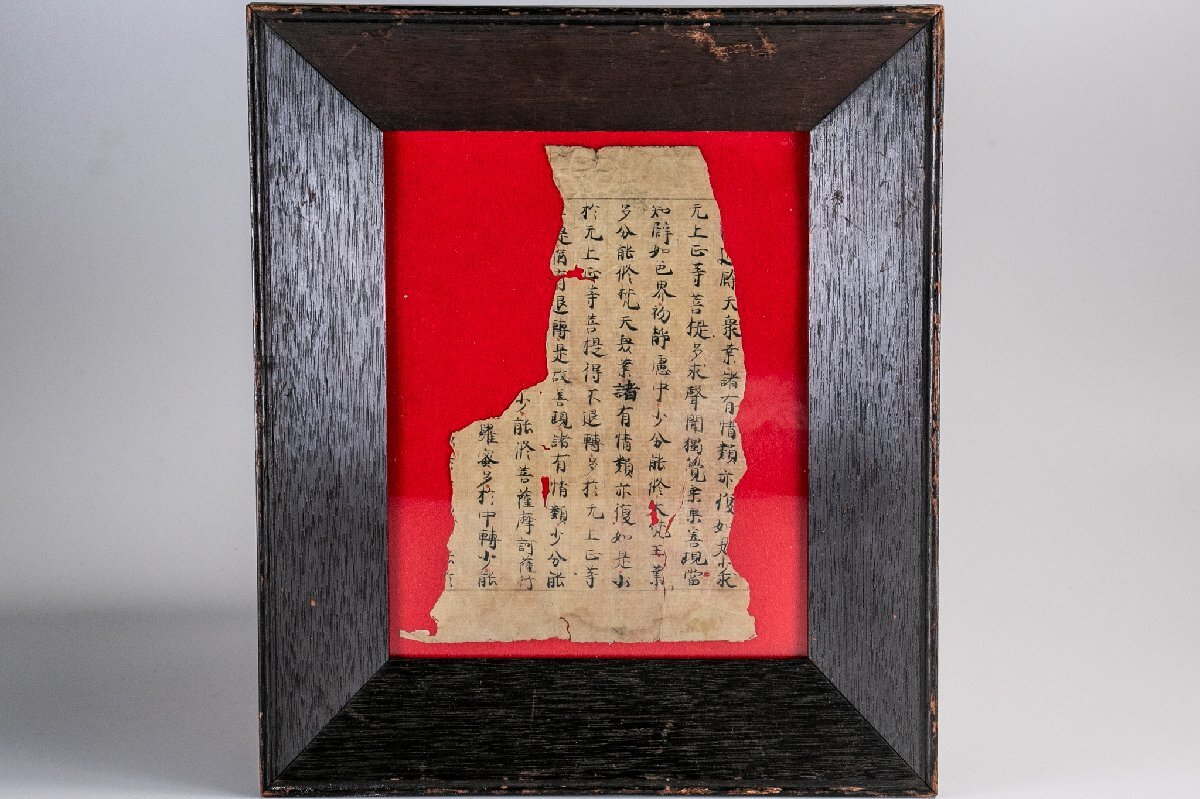 天衆業諸有情類亦復如是少求
无上正等菩提多求聲聞獨覺乘果善現當
知譬如色界初靜慮中少分能修大梵王業
多分能修梵天衆業諸有情類亦復如是少
於无上正等菩提得不退轉多於无上正等
提猶有退轉是故善現諸有情類少分能
少能修菩薩摩訶薩行
羅蜜多於中轉少能